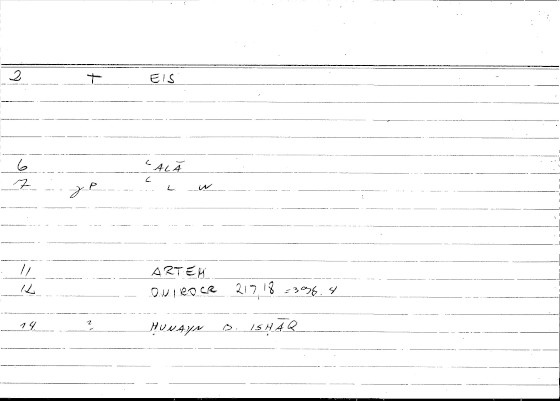 2 + EIS
6 ʿALĀ
7 gP ʿ L W
11 ARTEM
12 ONIROCR 217,18 = 396.4
14 ? ḤUNAYN B. ISḤĀQ